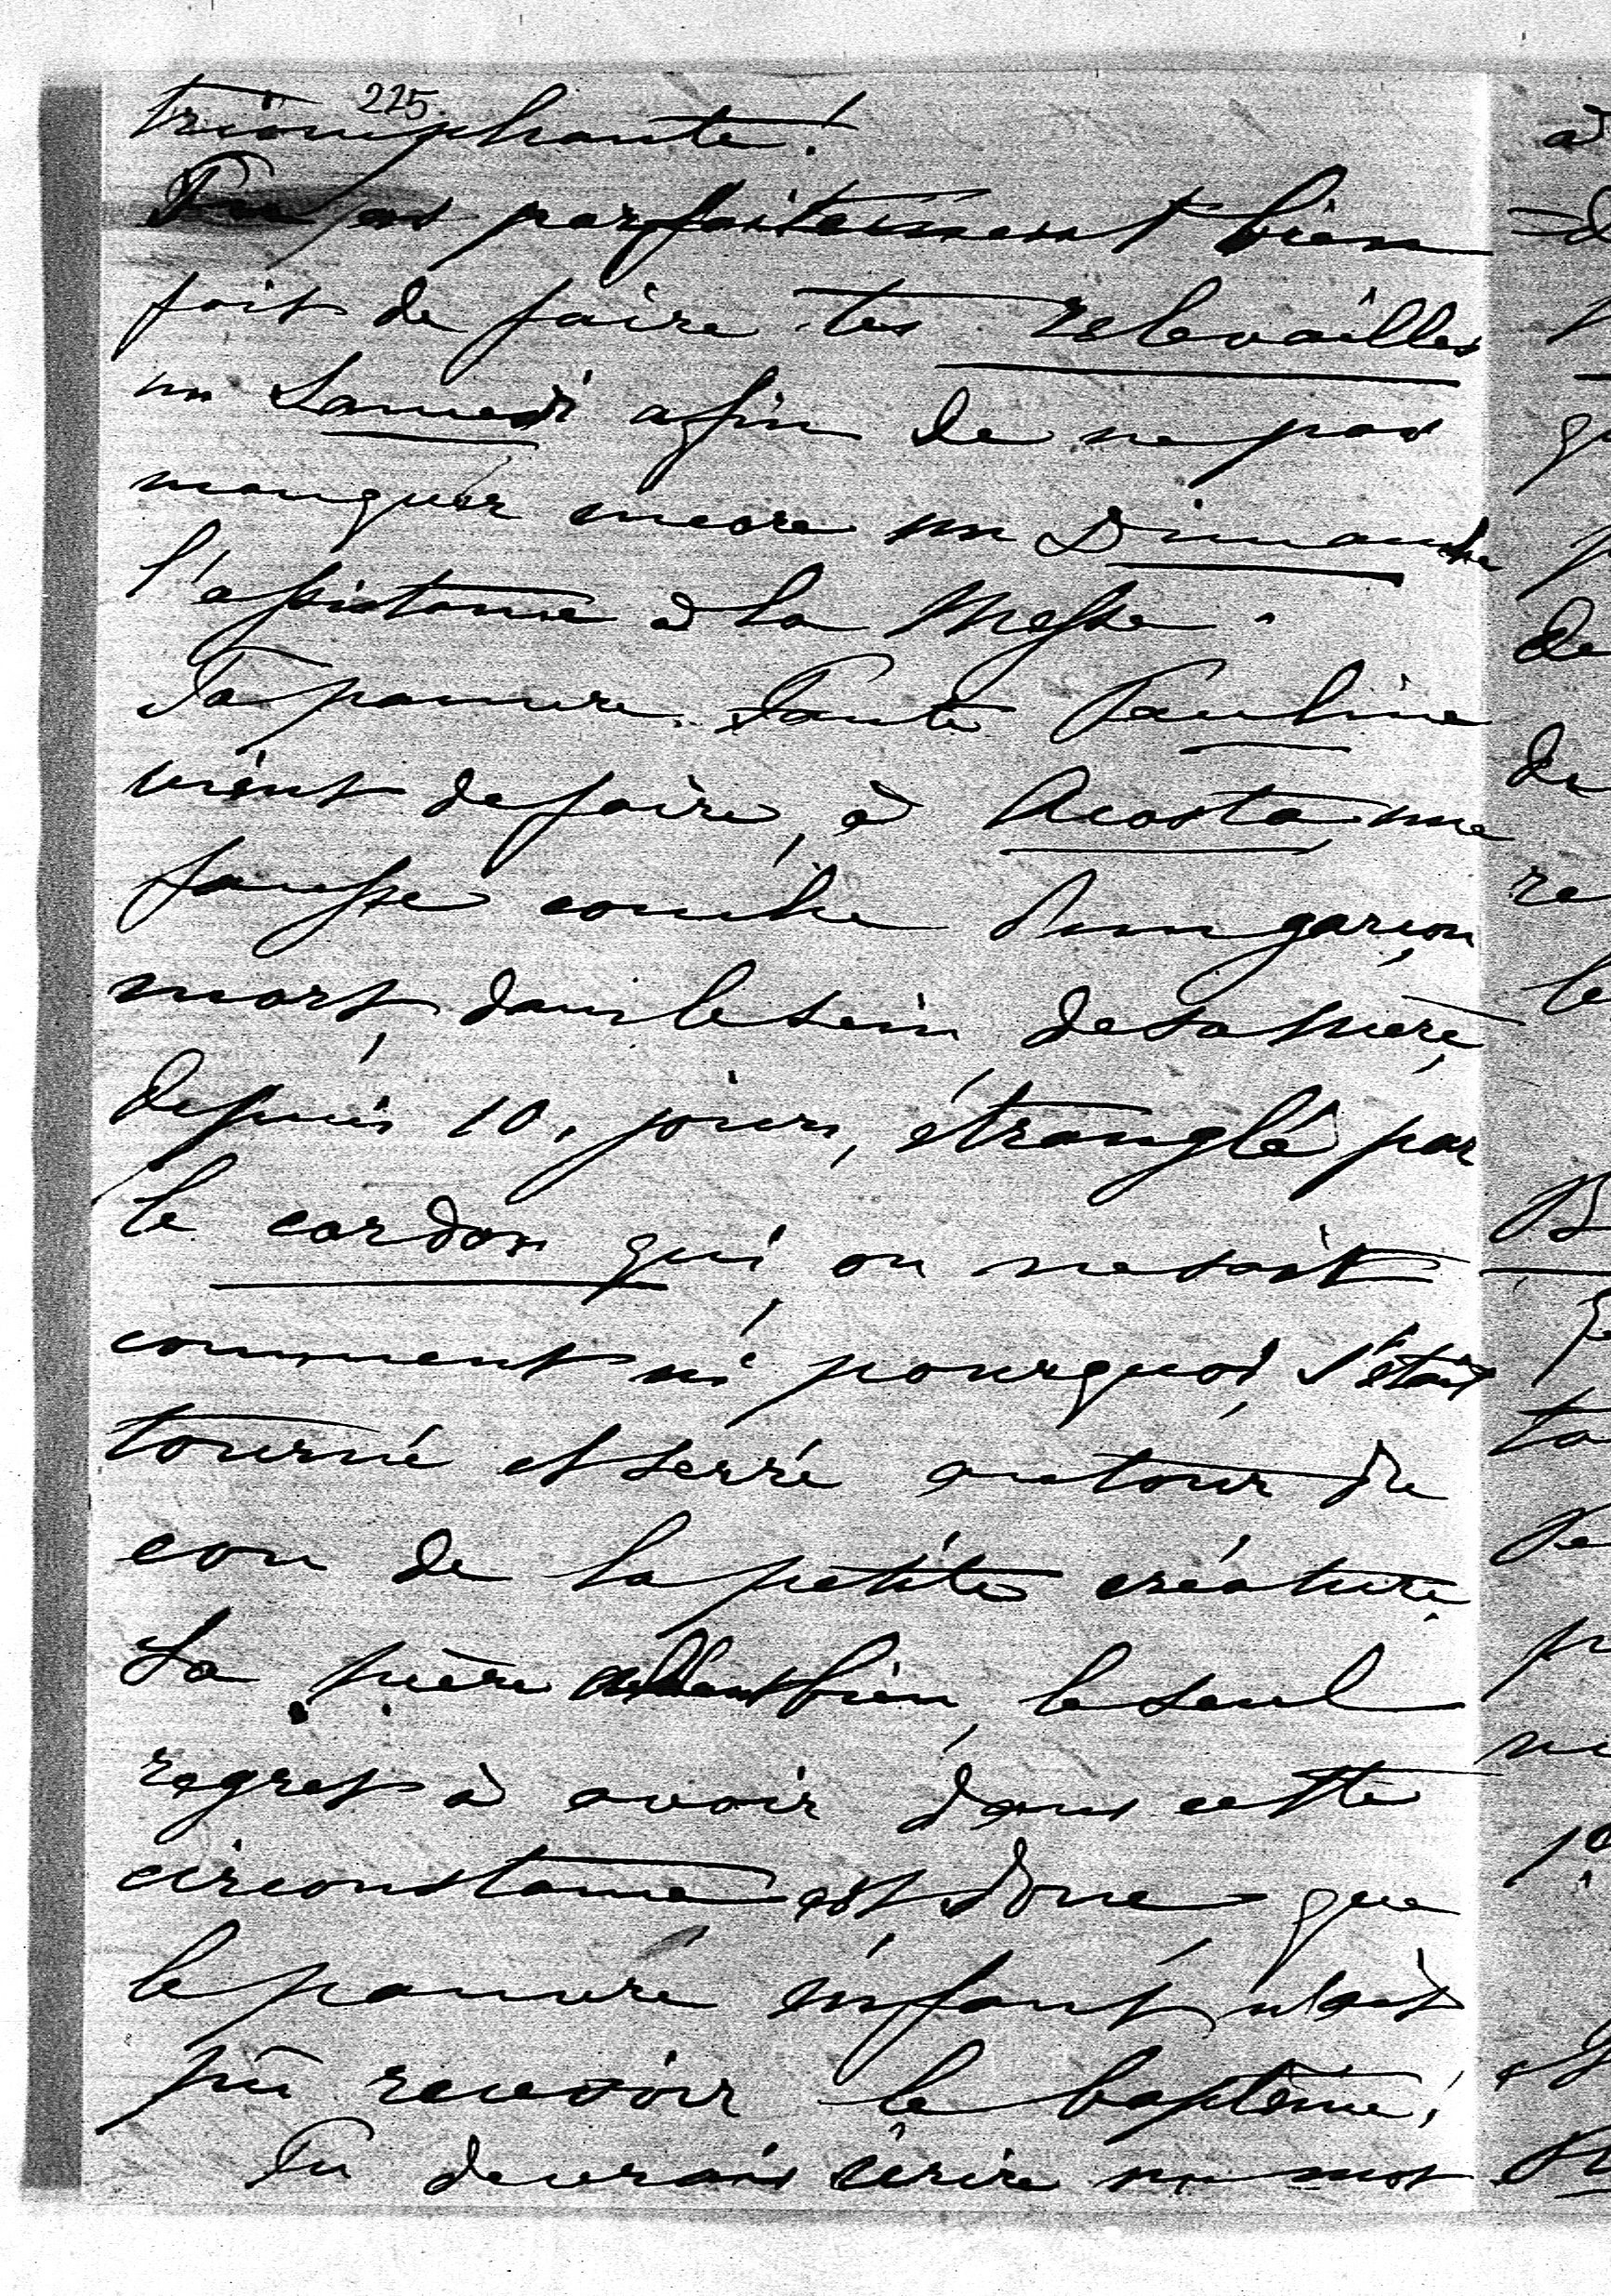 225.
triomphante!
Tu as parfaitement bien
fait de faire tes relevailles
un Samedi afin de ne pas
manquer encore un Dimanche
l'assistance à la Messe.
Ta pauvre Tante Pauline
vient de faire, à Acosta une
fausse couche d'un garçon
mort, dans le sein de sa mère,
depuis 10. jours, étranglé par
le cordon qui, on ne sait
comment ni pourquoi, s'était
tourné et serré autour du
cou de la petite créature.
La mère allant bien, le seul
regret à avoir dans cette
circonstance est donc que
le pauvre enfant n'ait
pû recevoir le baptême!
Tu devrais écrire un mot